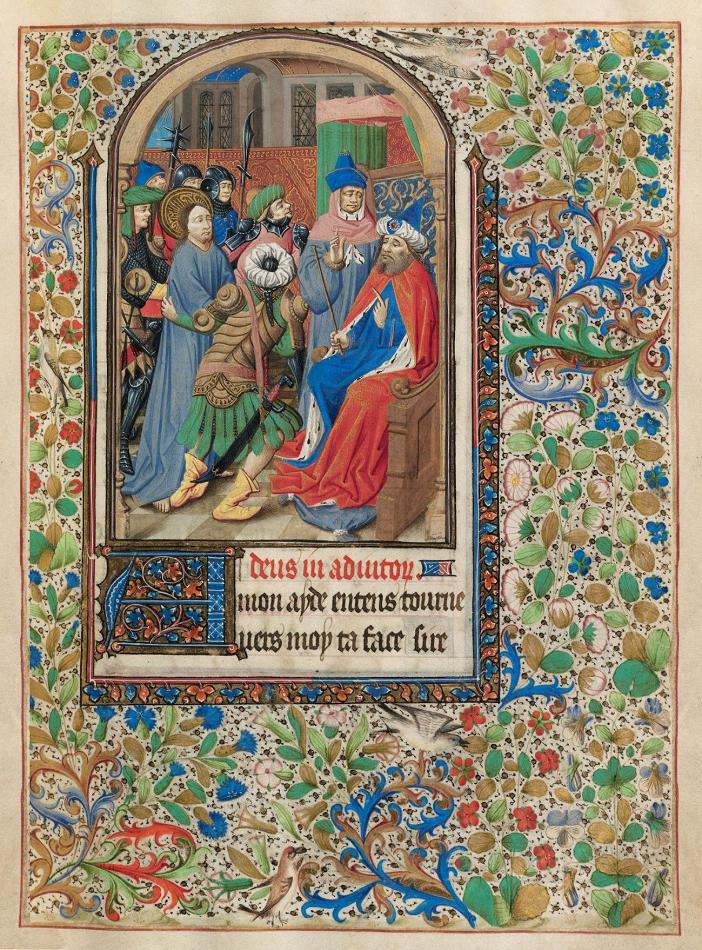 deus in adiutor.
A mon ayde entens tourne
uers moy ta face sire